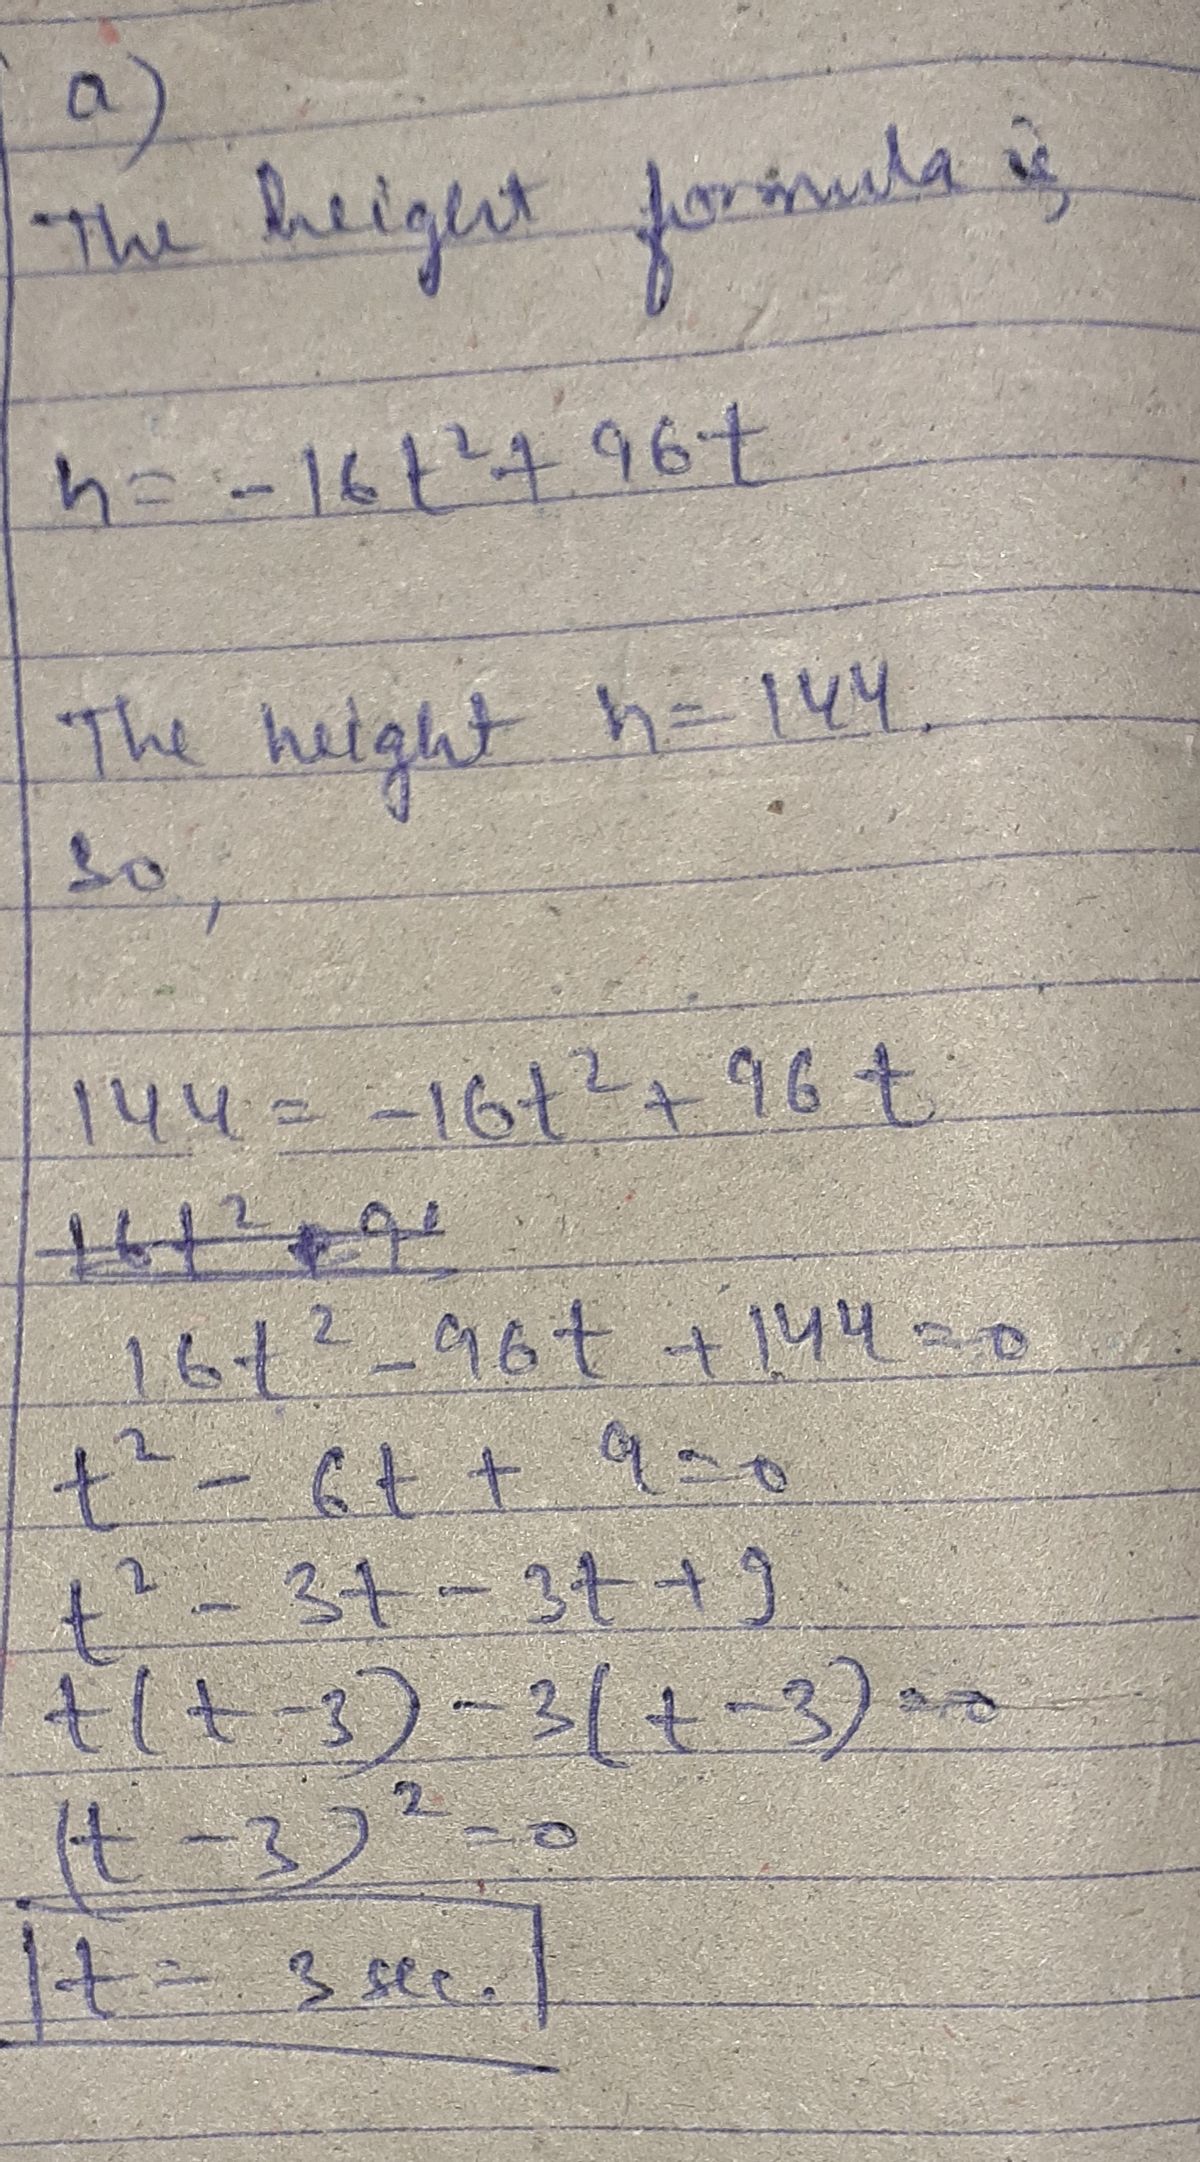 a)
The height formula is
h = -16t² + 96t
The height h = 144.
So,
144 = -16t² + 96t
16t² - 96t + 144 = 0
t² - 6t + 9 = 0
t² - 3t - 3t + 9
t(t-3) - 3(t-3) = 0
(t-3)² = 0
t = 3 sec.